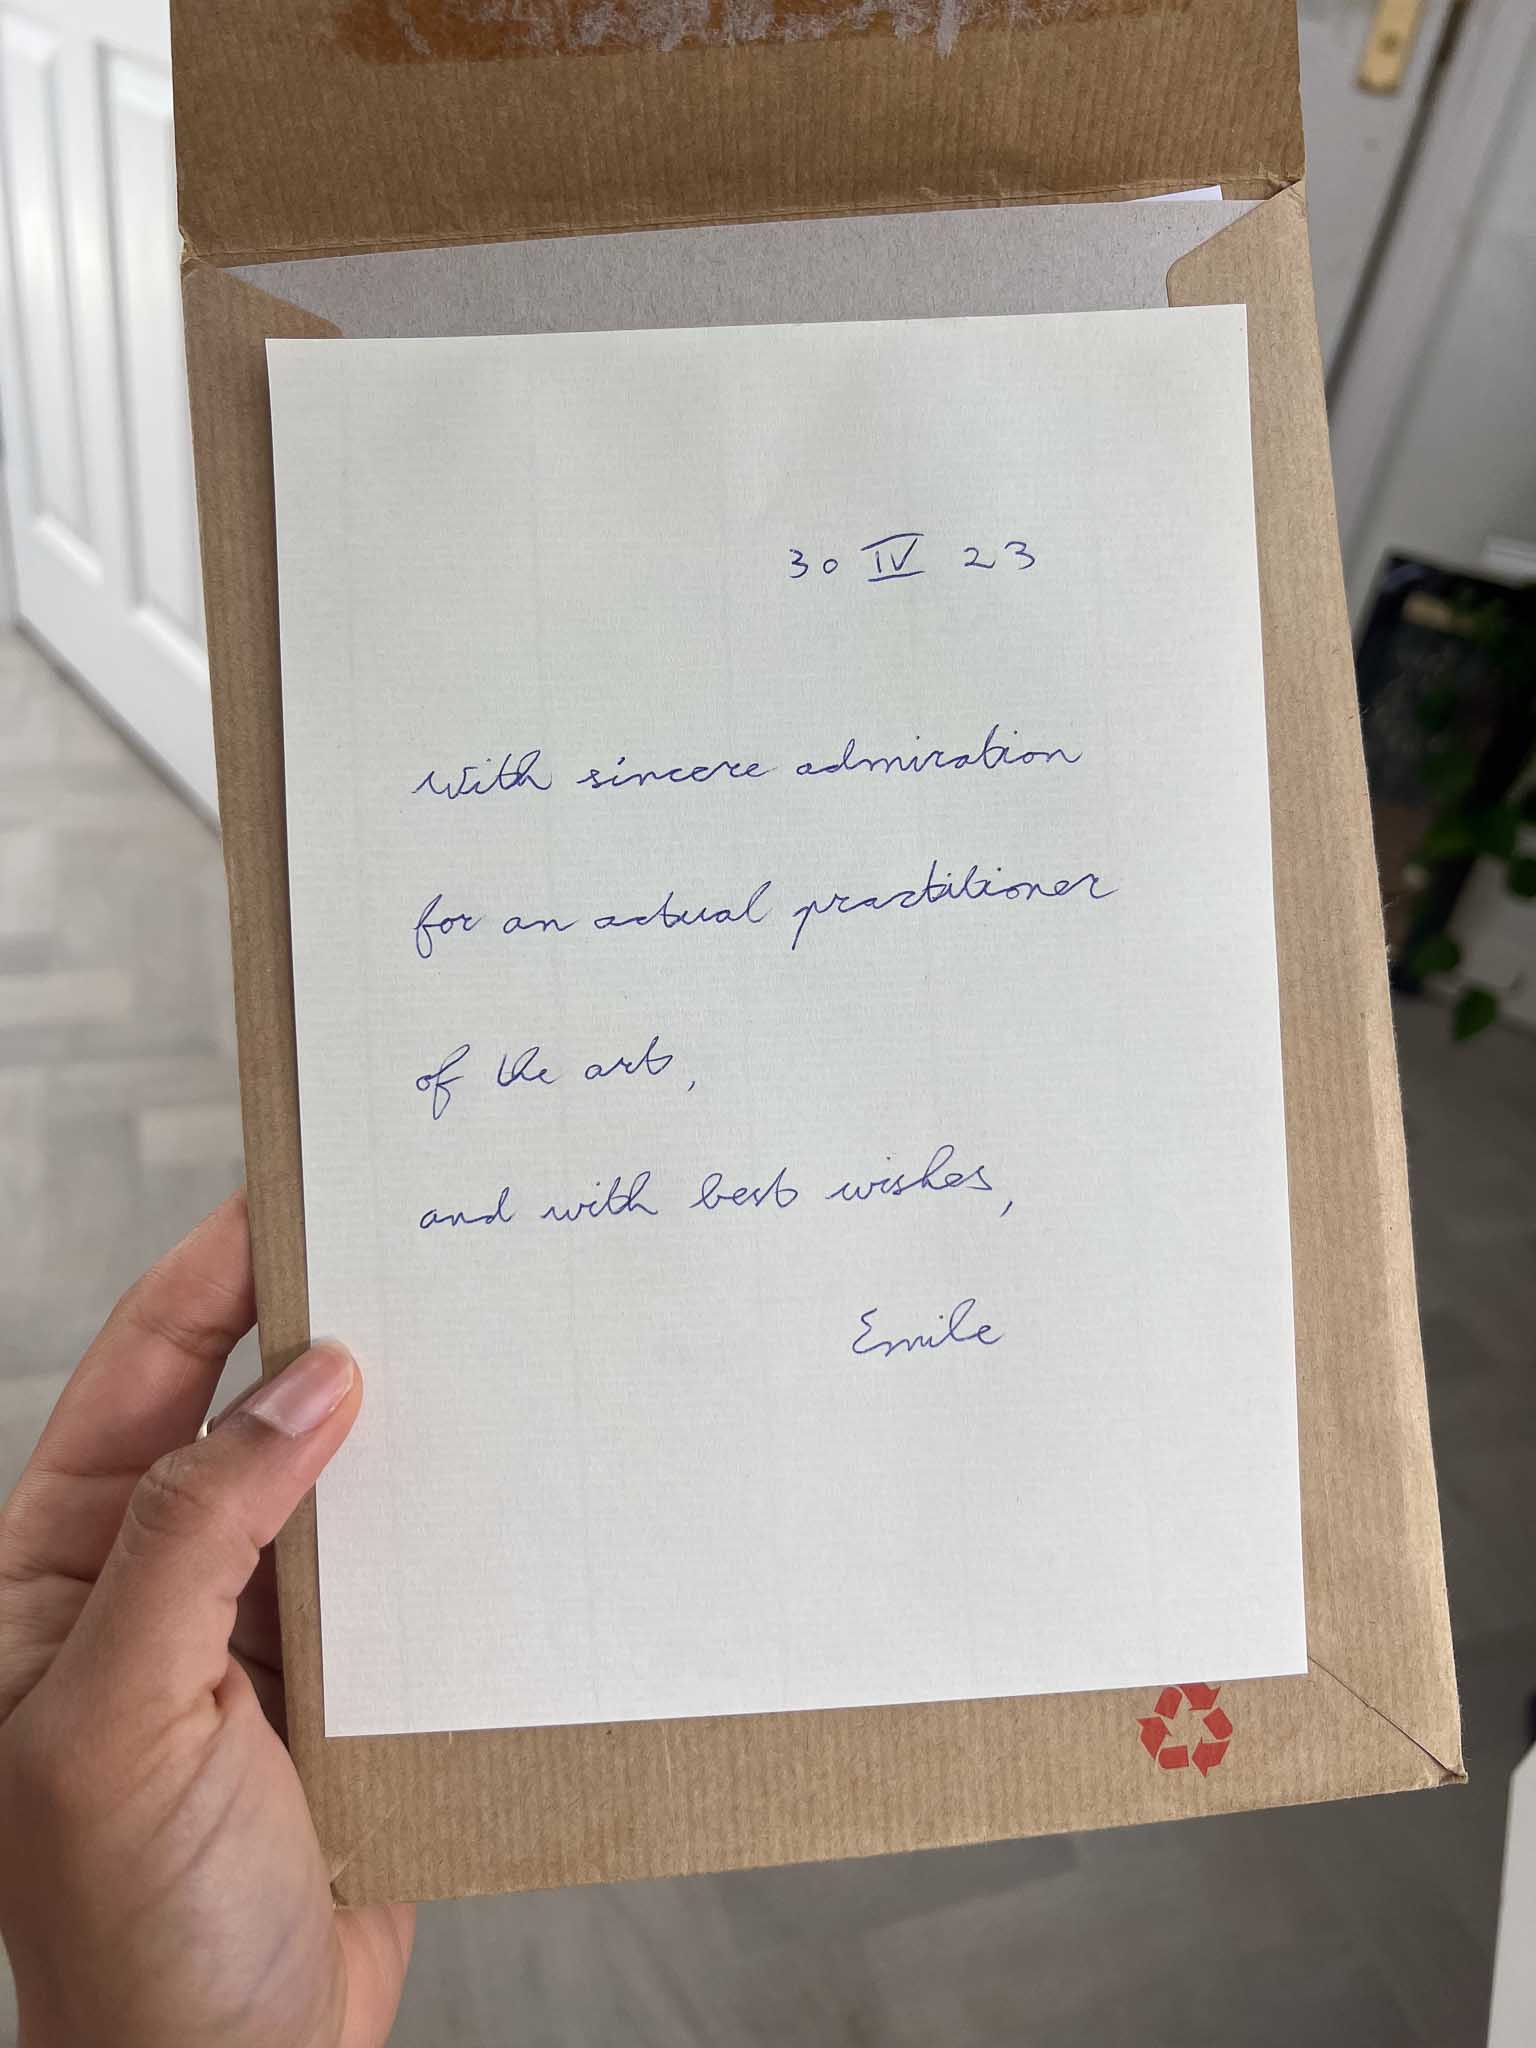 30 IV 23
with sincere admiration
for an actual practitioner
of the art,
and with best wishes,
Emile